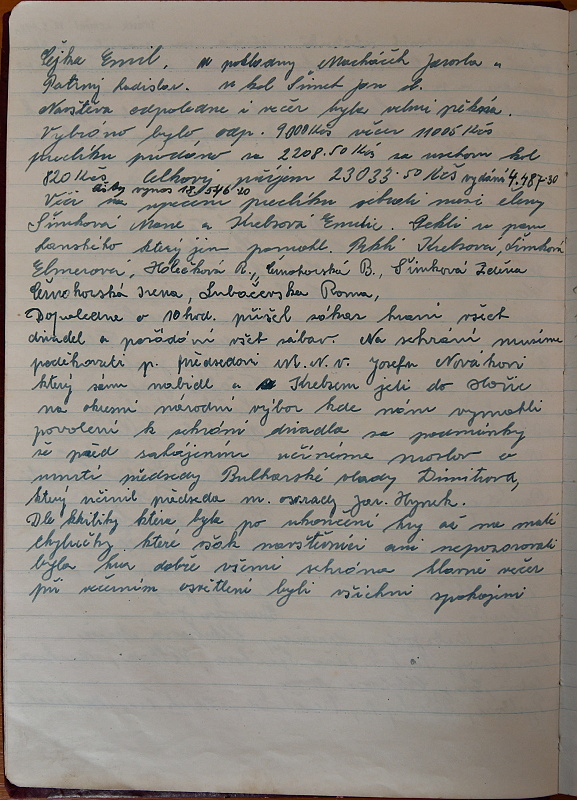 Čejka Emil. u pokladny Macháček Jarosla a
Patrný Ladislav. v kol Šimek Jan st.
Navštěva odpoledne i večer byla velmi pěkná.
Vybráno bylo odp. 9000 Kčs večer 11005 Kčs
preclíku prodáno za 2208.50 Kčs za kol
820 Kčs Celkový příjem 23033.50 Kčs vydání 4.487-30
čistý výnos 18.546.20
Věci na upečení preclíku sebrali mezi členy
Šimková Mane a Krebsová Emilie. Pekli u pan
danského který jim pomohl. Pekli Krebsova, Šimková
Elznerová, Holečková R., Černohorská B., Šimková Zdena
Černohorská Irena, Lubáčevska Roma,
Dopoledne o 10 hod. přišel zákaz hraní všech
divadel a pořádání všech zábav. Na sehrání musíme
poděkovati p. předsedovi M.N.V. Josefu Novákovi
který sám nabídl a Krebsem jeli do Hořic
na okresní národní výbor kde nám vymohli
povolení k sehrání divadla za podmínky
že před zahájením učiníme proslov o
umrtí předsedy Bulharské vlady Dimitrova,
který učinil předseda m. osv. rady Jar. Hynek.
Dle kritiky která byla po ukončení hry až na malé
chybičky které však navštěvníci ani nepozorovali
byla hra dobře všemi sehrána hlavně večer
při večerním osvětlení byli všichni spokojeni